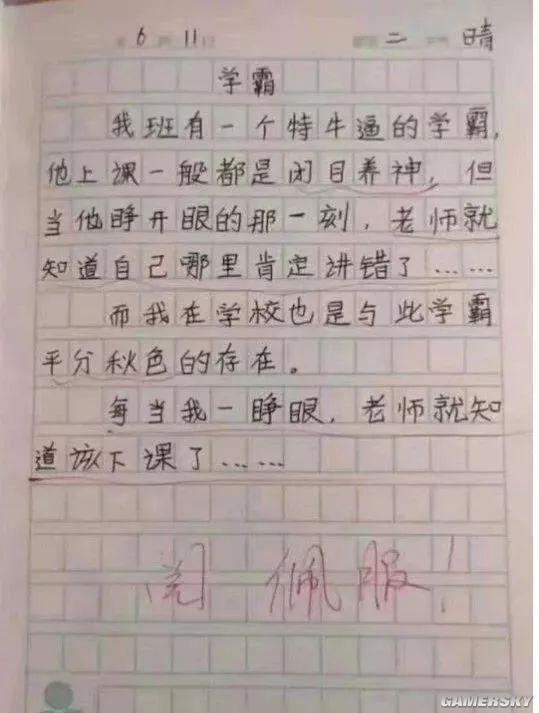 6 11 二 晴
学霸
我班有一个特牛逼的学霸,
他上课一般都是闭目养神,但
当他睁开眼的那一刻,老师就
知道自己哪里肯定讲错了……
而我在学校也是与此学霸
平分秋色的存在。
每当我一睁眼,老师就知
道该下课了……
阅 佩服!
GAMERSKY